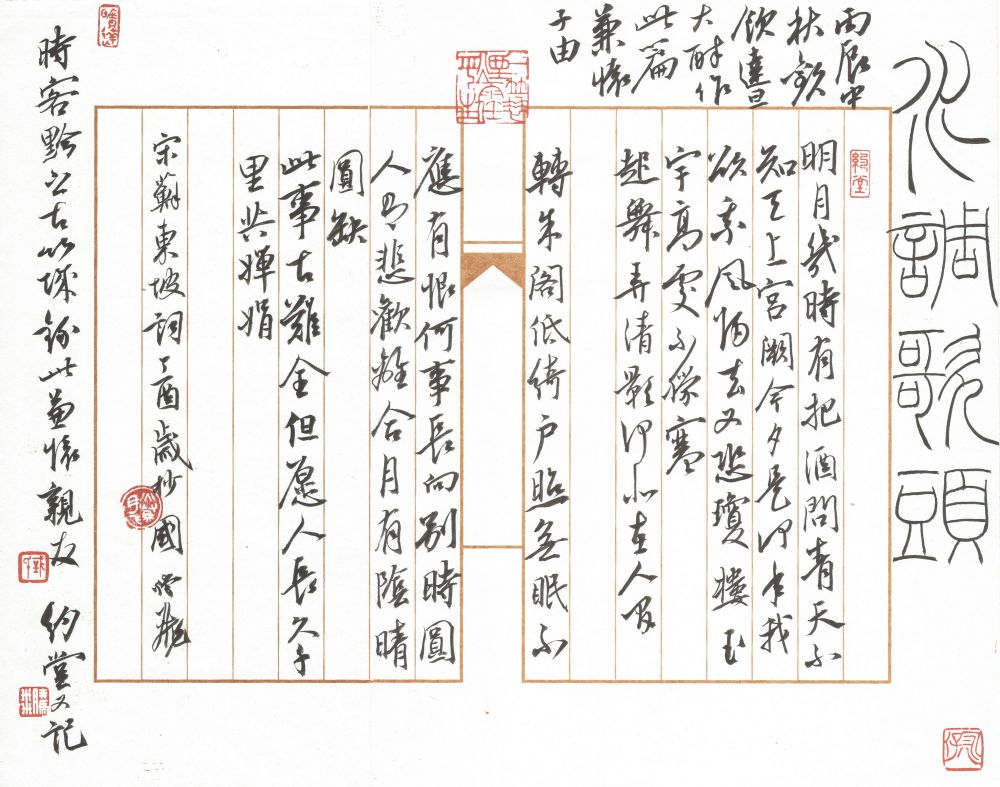 水調歌頭
丙辰中
秋歡
飲達旦
大醉作
此篇
兼懷
子由
約堂
明月幾時有把酒問青天不
知天上宮闕今夕是何年我
欲乘風歸去又恐瓊樓玉
宇高處不勝寒
起舞弄清影何似在人間
轉朱閣低綺戶照無眠不
應有恨何事長向別時圓
人有悲歡離合月有陰晴
圓缺
此事古難全但愿人長久千
里共嬋娟
宋蘇東坡詞丁酉歲抄國
時客黔之古州城此懷親友 約堂又記